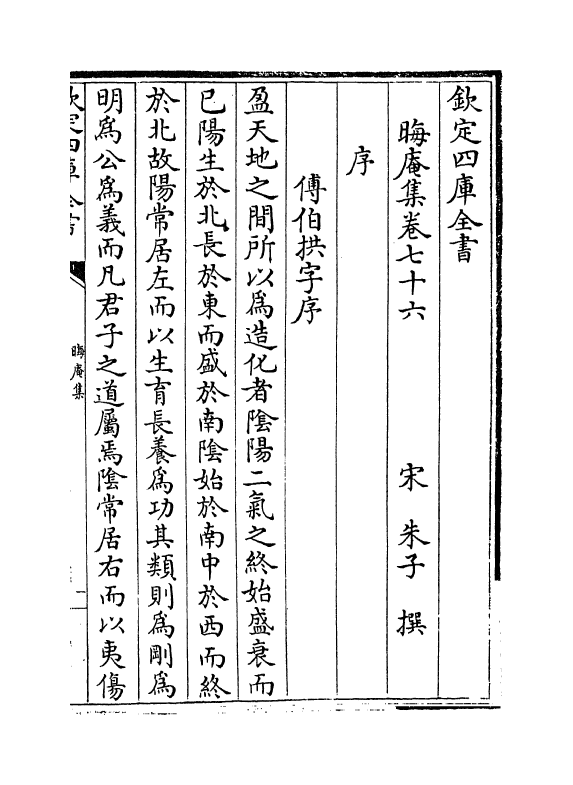 欽定四庫全書
晦庵集卷七十六
宋 朱子 撰
序
傅伯拱字序
盈天地之間所以為造化者陰陽二氣之終始盛衰而
已陽生於北長於東而盛於南陰始於南中於西而終
於北故陽常居左而以生育長養為功其類則為剛為
明為公為義而凡君子之道屬焉陰常居右而以夷傷
欽定四庫全書
晦庵集